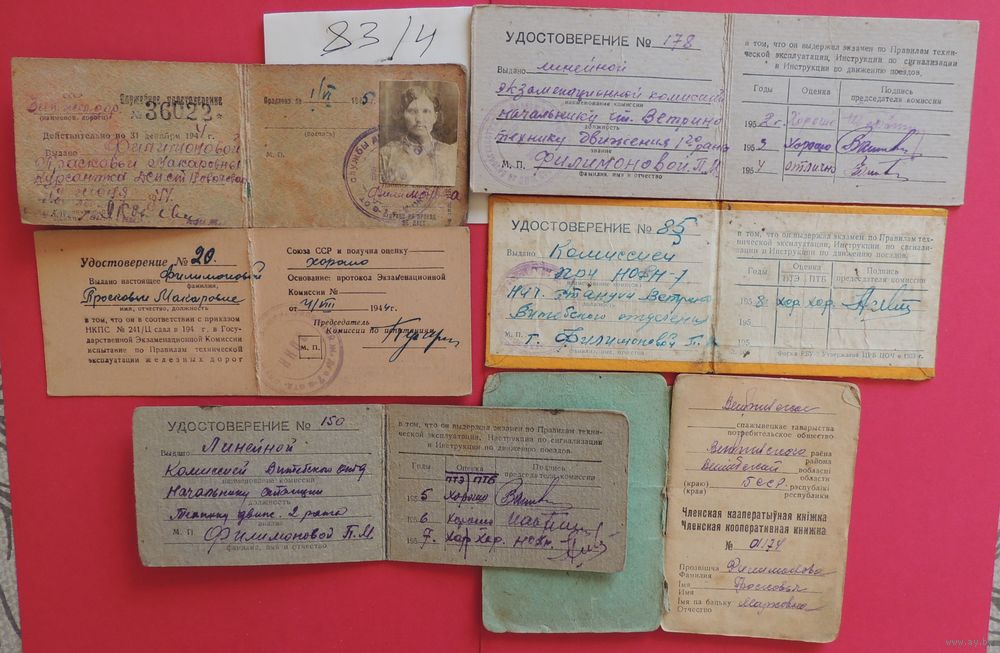 83/4
Служебное удостоверение
№ 36022
(наименов. дороги)
Действительно до 31 декабря 194
Филимоновой
Прасковьи Макаровны
Выдано 1/VI 1945
(подпись)
М. П.
УДОСТОВЕРЕНИЕ № 178
Выдано линейной
экзаменационной комиссией
наименование комиссии
Начальнику ст. Ветрино
должность
технику движения
звание
М. П. Филимоновой П. М
фамилия, имя и отчество
в том, что он выдержал экзамен по Правилам техни-
ческой эксплуатации, Инструкции по сигнализации
и Инструкции по движению поездов.
Годы Оценка Подпись председателя комиссии
1952г. Хорошо
1953 Хорошо
1954 отлично
Удостоверение № 20.
Выдано настоящее Филимоновой
фамилия,
Просковье Макаровне
имя, отчество, должность
в том, что он в соответствии с приказом
НКПС № 241/Ц сдал в 194 г. в Государ-
ственной Экзаменационной Комиссии
испытание по Правилам технической
эксплуатации железных дорог
Союза ССР и получил оценку
хорошо
Основание: протокол Экзаменационной
Комиссии №
от 4/VIII 1944г.
Председатель
Комиссии по испытаниям
М. П.
УДОСТОВЕРЕНИЕ № 85
Выдано Комиссией
при НОДН-7
Нач. станции Ветрино
Витебского отделения
М. П. т. Филимоновой П. М.
фамилия, имя, отчество
в том, что он выдержал экзамен по Правилам тех-
нической эксплуатации, Инструкции по сигнализа-
ции и Инструкции по движению поездов.
Годы Оценка ПТЭ ПТБ Подпись председателя комиссии
1958 Хор. Хор.
195
195
УДОСТОВЕРЕНИЕ № 150
Выдано Линейной
Комиссией Витебского отд
наименование комиссии
Начальнику станции
должность
Технику движ. 2 ранга
звание
М. П. Филимоновой П. М
фамилия, имя и отчество
в том, что он выдержал экзамен по Правилам техни-
ческой эксплуатации, Инструкции по сигнализации
и Инструкции по движению поездов.
Годы Оценка ПТЭ ПТБ Подпись председателя комиссии
1955 Хорошо
1956. Хорошо
1957. Хор Хор.
спажывецкае таварыства
потребительское общество
Ветринского раёна
района
Витебской вобласці
области
(краю) БССР. рэспублікі
(края) республики
Членская кааператыўная кніжка
Членская кооперативная книжка
№ 01174
Прозвішча Филимонова
Фамилия
Імя Просковья
Имя
Імя па бацьку
Отчество
www.ay.by